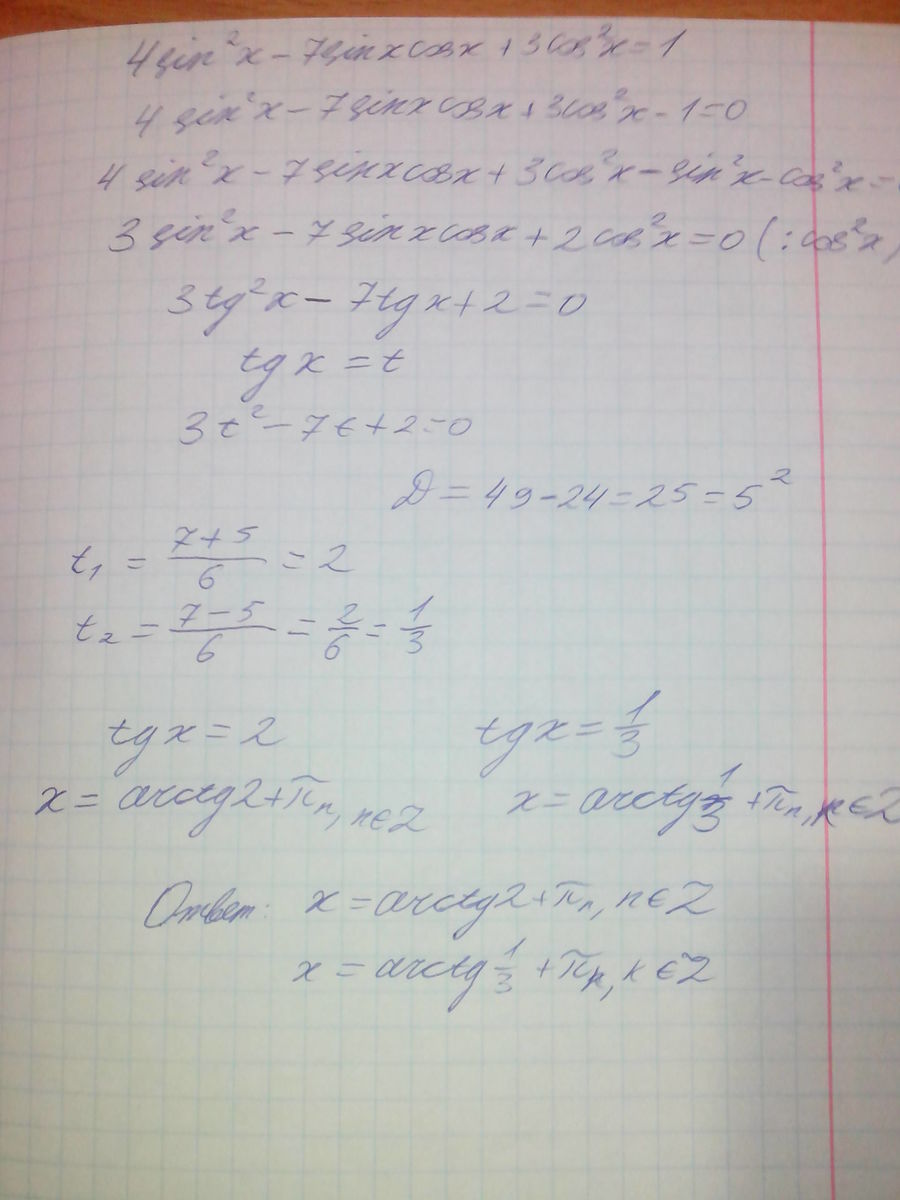 4sin²x - 7sinxcosx + 3cos²x = 1
4sin²x - 7sinxcosx + 3cos²x - 1 = 0
4sin²x - 7sinxcosx + 3cos²x - sin²x - cos²x =
3sin²x - 7sinxcosx + 2cos²x = 0 (:cos²x)
3tg²x - 7tgx + 2 = 0
tgx = t
3t² - 7t + 2 = 0
D = 49 - 24 = 25 = 5²
t₁ = (7+5)/6 = 2
t₂ = (7-5)/6 = 2/6 = 1/3
tgx = 2 tgx = 1/3
x = arctg2 + πn, n∈Z x = arctg 1/3 + πn, n∈Z
Ответ: x = arctg2 + πn, n∈Z
x = arctg 1/3 + πn, n∈Z